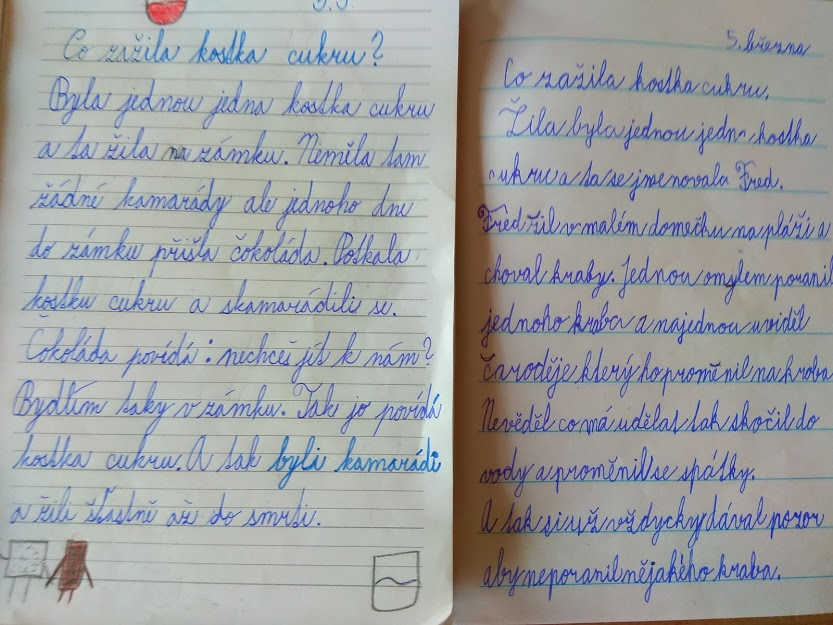 5.3.
Co zažila kostka cukru?
Byla jednou jedna kostka cukru
a ta žila na zámku. Neměla tam
žádné kamarády ale jednoho dne
do zámku přišla čokoláda. Potkala
kostku cukru a skamarádili se.
Čokoláda povídá: nechceš jít k nám?
Bydlím taky v zámku. Tak jo povídá
kostka cukru. A tak byli kamarádi
a žili šťastně až do smrti.
5. března
Co zažila kostka cukru.
Žila byla jednou jedna kostka
cukru a ta se jmenovala Fred.
Fred žil v malém domečku na pláži a
choval kraby. Jednou omylem poranil
jednoho kraba a najednou uviděl
čaroděje který ho proměnil na kraba
Nevěděl co má udělat tak skočil do
vody a proměnil se spátky.
A tak si už vždycky dával pozor
aby neporanil nějakého kraba.